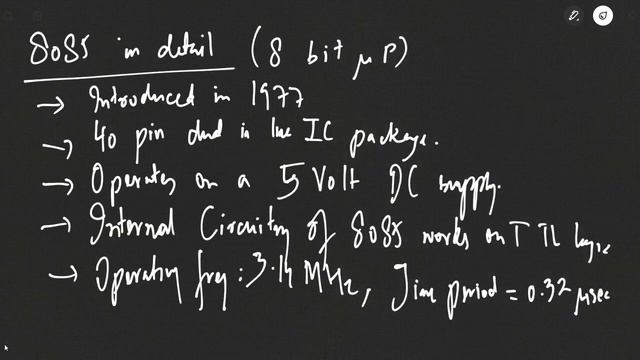 8085 in detail (8 bit μP)
→ Introduced in 1977
→ 40 pin dual in line IC package.
→ Operates on a 5 Volt DC supply.
→ Internal Circuitry of 8085 works on TTL logic
→ Operating freq: 3.14 MHz, Time period = 0.32 μsec